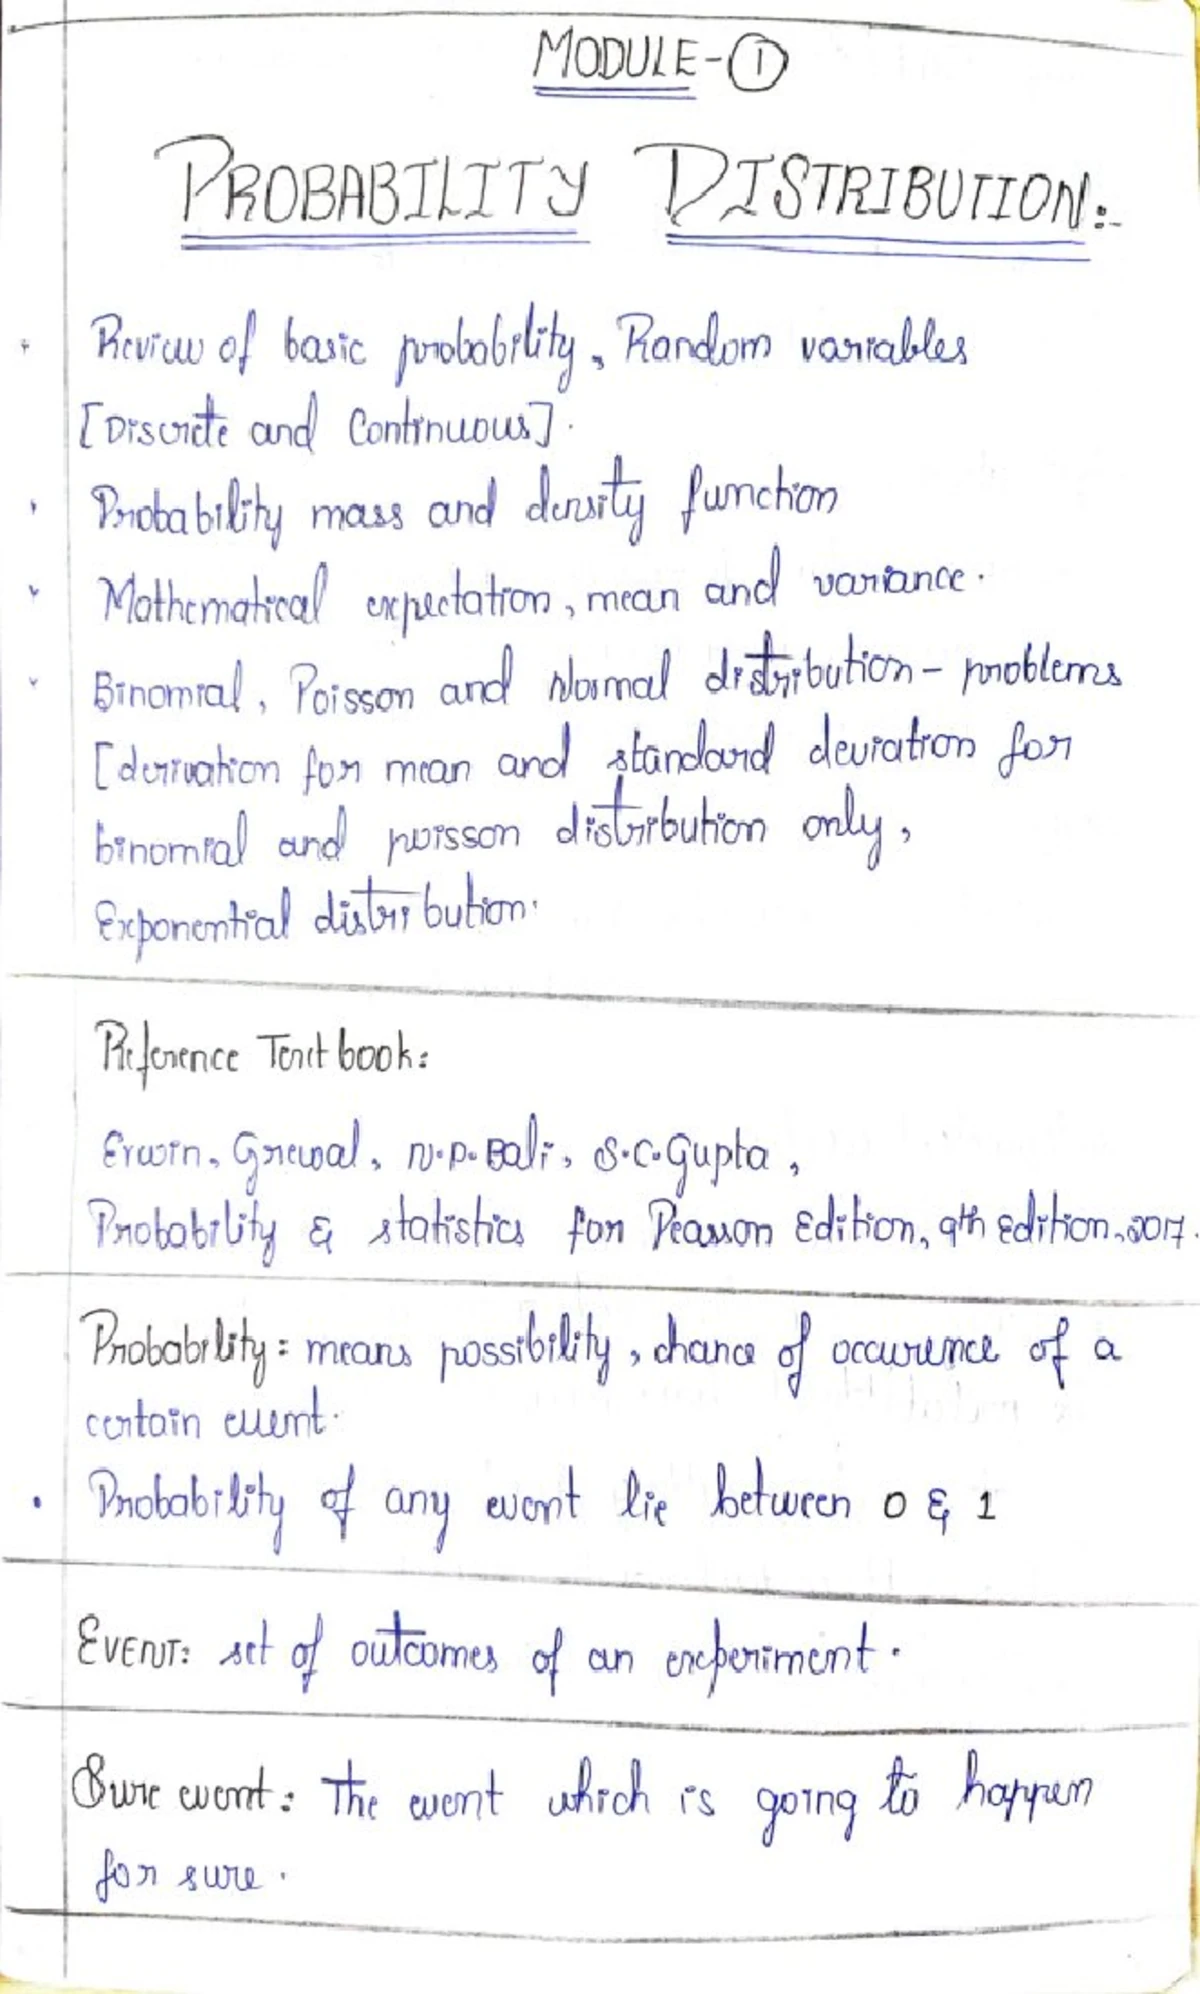 MODULE-①
PROBABILITY DISTRIBUTION:-
Review of basic probability, Random variables
[Discrete and Continuous].
Probability mass and density function
Mathematical expectation, mean and variance.
Binomial, Poisson and Normal distribution - problems
[derivation for mean and standard deviation for
binomial and poisson distribution only,
Exponential distribution.
Reference Text book:
Erwin, Grewal, N.P. Bali, S.C. Gupta,
Probability & statistics for Pearson Edition, 9th Edition, 2017.
Probability: means possibility, chance of occurence of a
certain event.
• Probability of any event lie between 0 & 1
EVENT: set of outcomes of an experiment.
Sure event: The event which is going to happen
for sure.